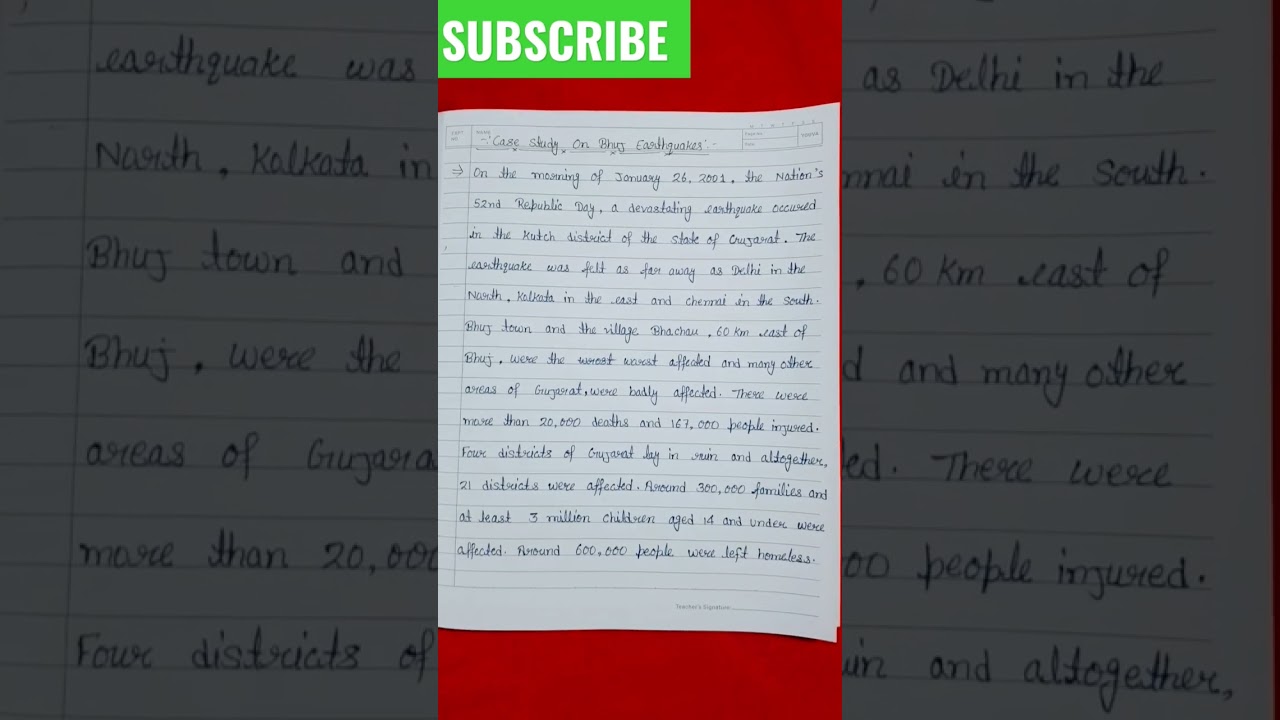 SUBSCRIBE
-: Case Study On Bhuj Earthquakes :-
⇒ On the morning of January 26, 2001, the Nation's
52nd Republic Day, a devastating earthquake occured
in the Kutch district of the state of Gujarat. The
earthquake was felt as far away as Delhi in the
North, Kolkata in the east and chennai in the south.
Bhuj town and the village Bhachau, 60 km east of
Bhuj, were the wrost worst affected and many other
areas of Gujarat, were badly affected. There were
more than 20,000 deaths and 167,000 people injured.
Four districts of Gujarat lay in ruin and altogether,
21 districts were affected. Around 300,000 families and
at least 3 million children aged 14 and under were
affected. Around 600,000 people were left homeless.
Teacher's Signature
earthquake was
North, Kolkata in
Bhuj town and
Bhuj, were the
areas of Gujara
more than 20,000
Four districts of
as Delhi in the
nnai in the south.
, 60 km east of
d and many other
ed. There were
00 people injured.
uin and altogether,